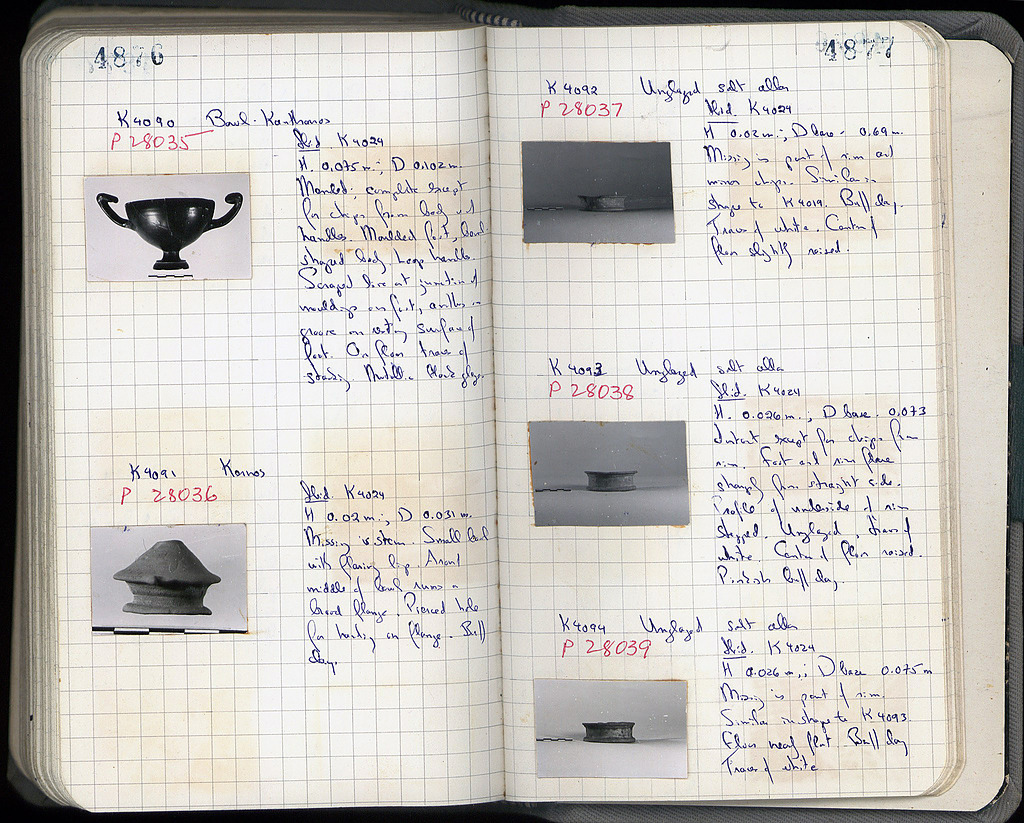 4876
K 4090 Bowl-Kantharos
P 28035
Ibid. K 4024
H. 0.075 m.; D 0.102 m.
Mended; complete except
for chips from body and
handles. Moulded foot, bowl
shaped body, loop handles.
Scraped line at junction of
mouldings on foot, another in
groove on resting surface of
foot. On floor traces of
stacking. Metallic black glaze.
K 4091 Kernos
P 28036
Ibid. K 4024
H 0.02 m.; D 0.031 m.
Missing is stem. Small bowl
with flaring lip. Around
middle of bowl runs a
broad flange. Pierced hole
for hanging on flange. Buff
clay.
4877
K 4092 Unglazed salt cellar
P 28037
Ibid. K 4024
H 0.02 m.; D base - 0.69 m.
Missing is part of rim and
minor chips. Similar in
shape to K 4019. Buff clay.
Traces of white. Center of
floor slightly raised.
K 4093 Unglazed salt cellar
P 28038
Ibid. K 4024
H. 0.026 m.; D base. 0.073
Intact except for chips from
rim. Foot and rim flare
sharply from straight side.
Profile of underside of rim
stepped. Unglazed, traces of
white. Center of floor raised.
Pinkish buff clay.
K 4094 Unglazed salt cellar
P 28039
Ibid. K 4024
H 0.026 m.; D base 0.075 m
Missing is part of rim.
Similar in shape to K 4093.
Floor nearly flat. Buff clay
Traces of white